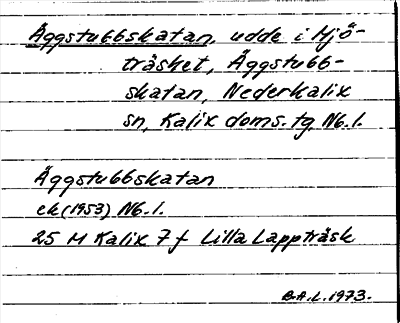 Äggstubbskatan, udde i Mjö-
träsket, Äggstubb-
skatan, Nederkalix
sn, Kalix doms.tg, Nb.l.
Äggstubbskatan
ek (1953) Nb.l.
25 M Kalix 7 f Lilla Lappträsk
B.A.L. 1973.